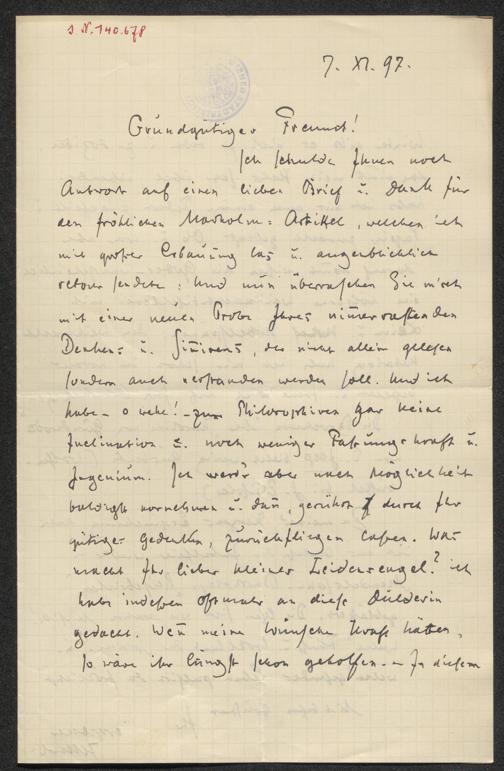 J. N. 740.678
7. XI. 97.
Grundgütiger Freund!
Ich schulde Ihnen noch
Antwort auf einen lieben Brief u. Dank für
den fröhlichen Marholm-Artikel, welchen ich
mit großer Erbauung las u. augenblicklich
retour sendete. Und nun überraschen Sie mich
mit einer neuen Probe Ihres nimmerrastenden
Denkens u. Sinnirens, der nicht allein gelesen
sondern auch verstanden werden soll. Und ich
habe – o wehe! – zum Philosophiren gar keine
Inclination u. noch weniger Fassungskraft u.
Ingenium. Ich werd's aber nach Möglichkeit
baldigst vornehmen u. dañ, gerührt durch Ihr
gütiges Gedenken, zurückfliegen lassen. Was
macht Ihr lieber kleiner Leidensengel? ich
habe indessen oftmals an diese Dulderin
gedacht. Weñ meine Wünsche Kraft hätten,
so wäre ihr längst schon geholfen. – In diesem